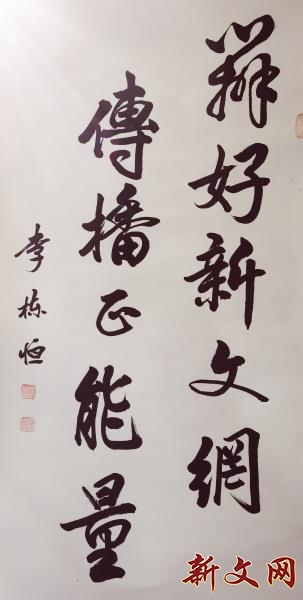 辦好新文網
傳播正能量
李栋恒
新文网